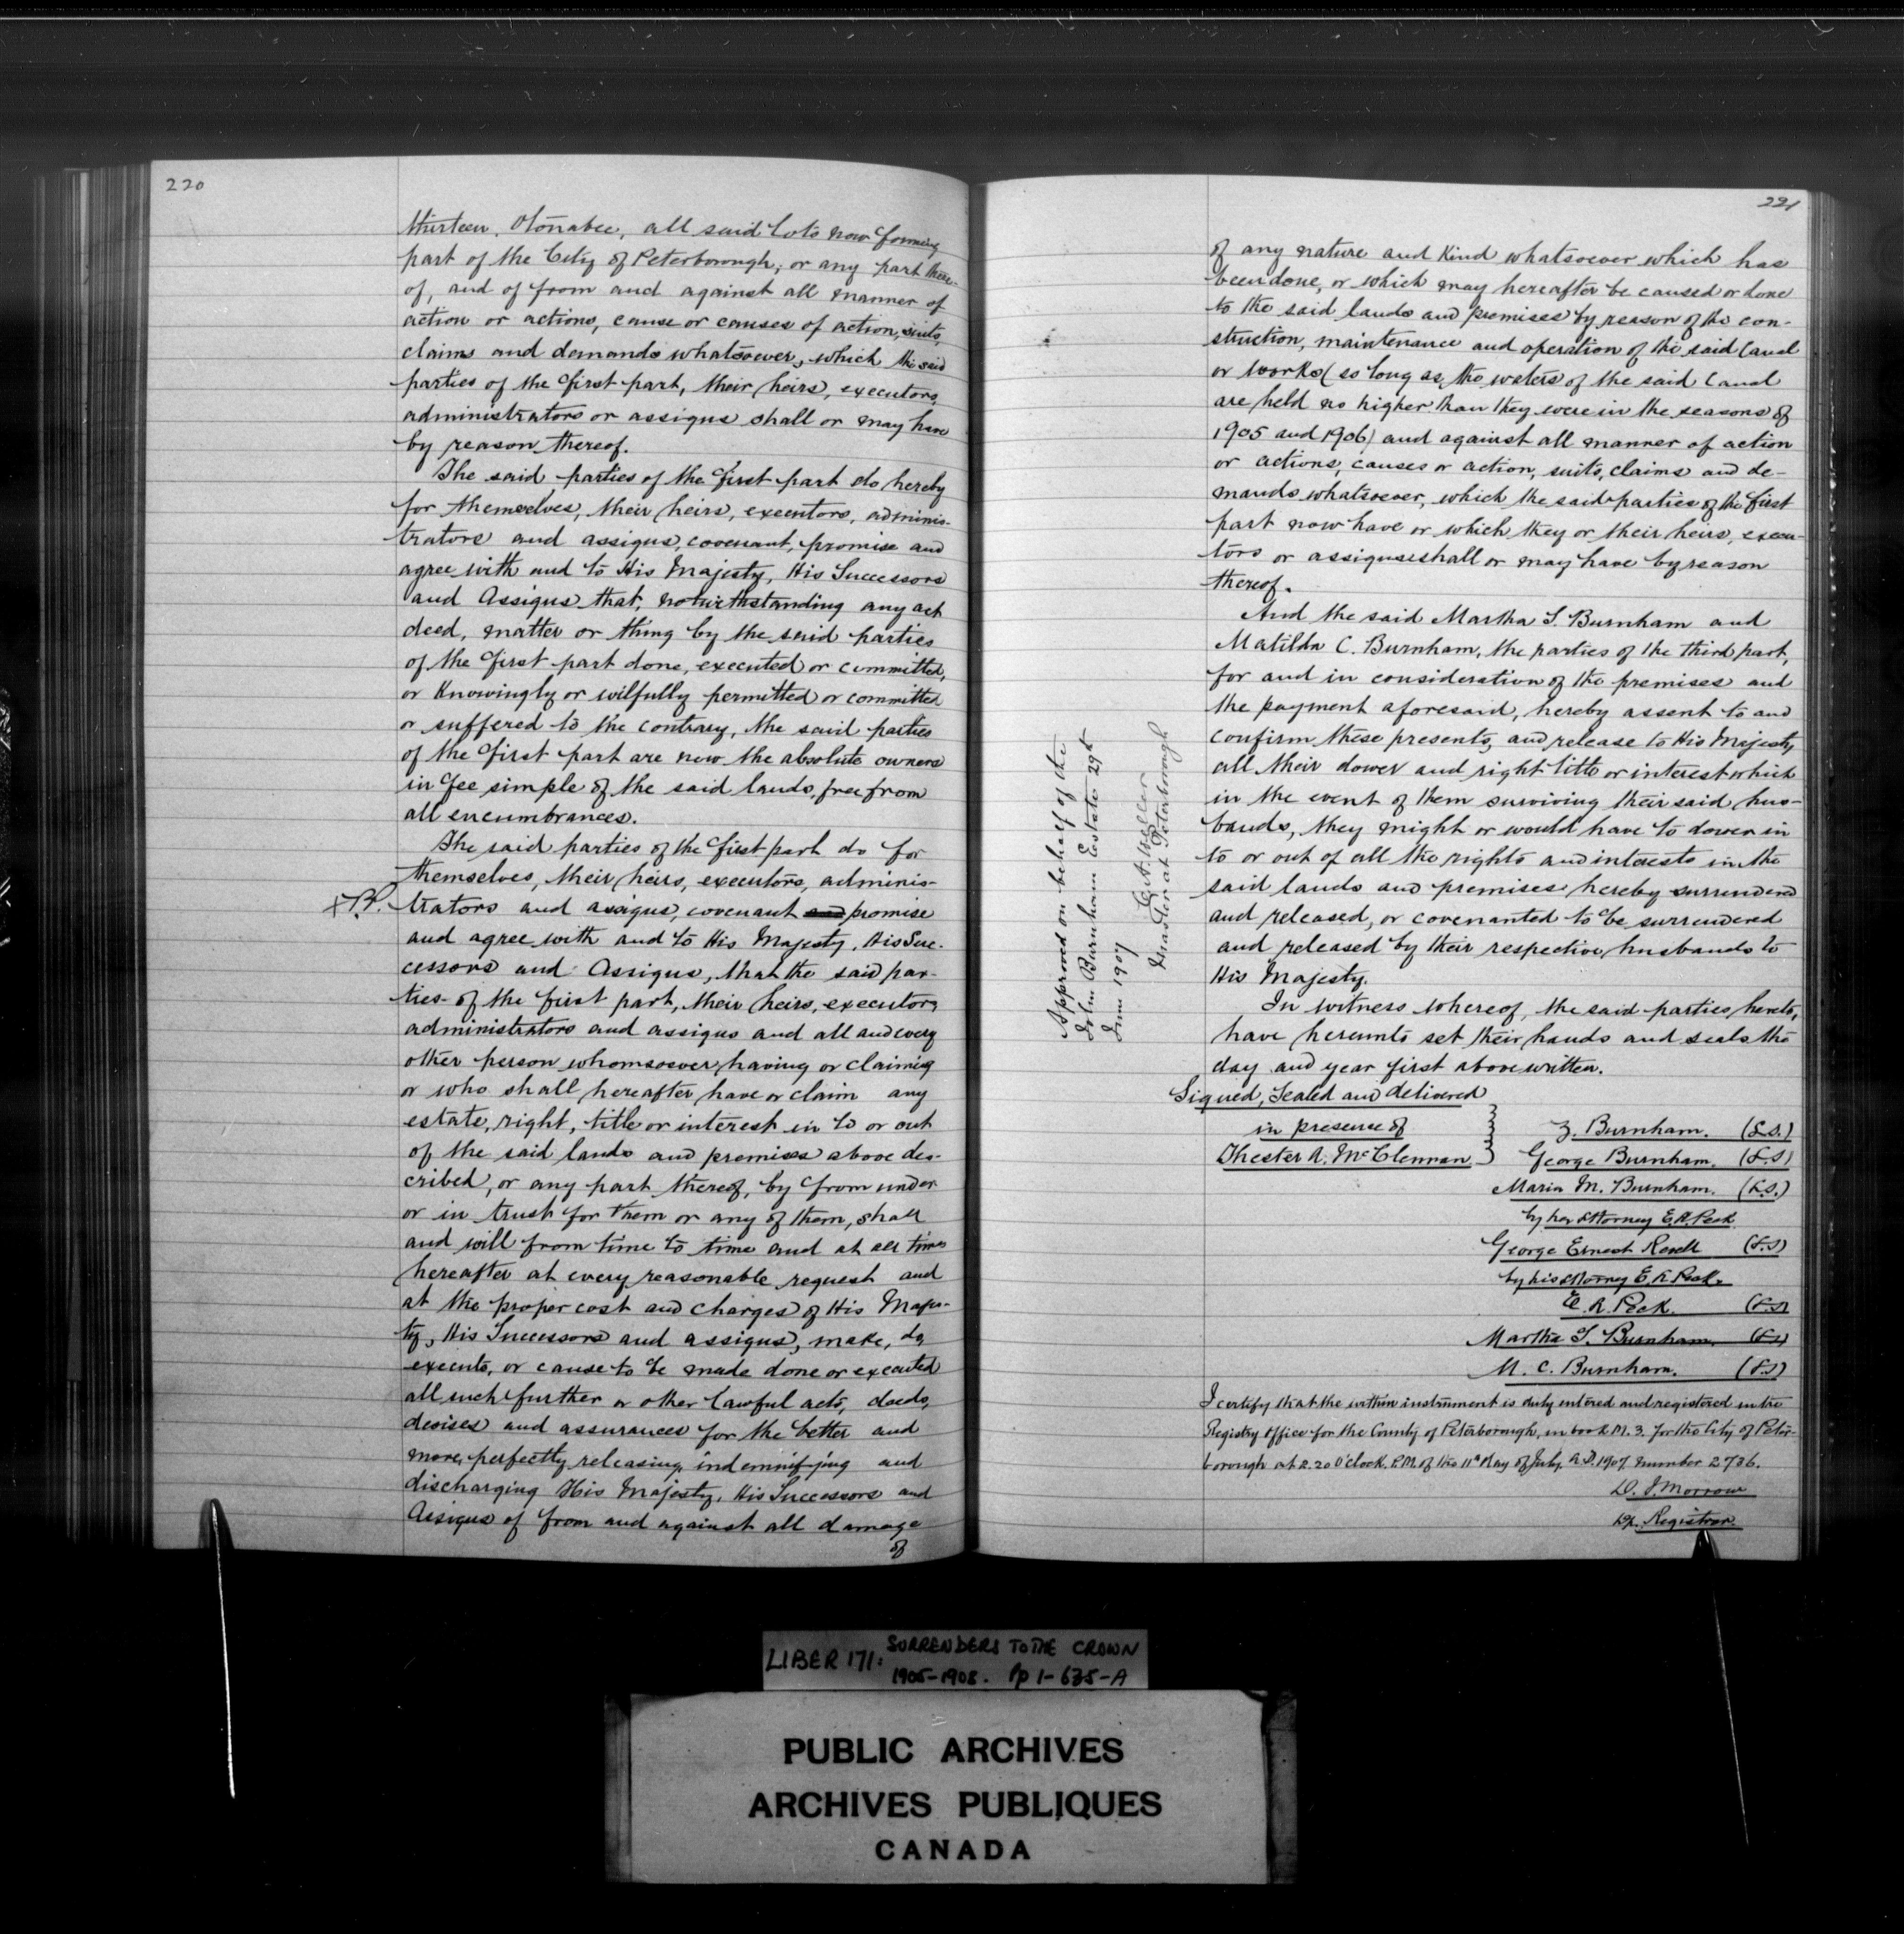 220
thirteen, Otonabee, all said Lots now forming
part of the City of Peterborough; or any part there-
of, and of from and against all manner of
action or actions, cause or causes of action, suits,
claims and demands whatsoever, which the said
parties of the first part, their heirs, executors,
administrators or assigns shall or may have
by reason thereof.
The said parties of the first part do hereby
for themselves, their heirs, executors, adminis-
trators and assigns, covenant, promise and
agree with and to His Majesty, His Successors
and Assigns that, notwithstanding any act
deed, matter or thing by the said parties
of the first part done, executed or committed,
or Knowingly or wilfully permitted or committed
or suffered to the contrary, the said parties
of the first part are now the absolute owners
in fee simple of the said lands, free from
all encumbrances.
The said parties of the first part do for
themselves, their heirs, executors, adminis-
trators and assigns, covenant and promise
and agree with and to His Majesty, His Suc-
cessors and Assigns, that the said par-
ties of the first part, their heirs, executors,
administrators and assigns and all and every
other person whomsoever having or claiming
or who shall hereafter have or claim any
estate, right, title or interest in to or out
of the said lands and premises above des-
cribed, or any part thereof, by from under
or in trust for them or any of them, shall
and will from time to time and at all times
hereafter at every reasonable request and
at the proper cost and charges of His Majes-
ty, His Successors and assigns, make, do,
execute, or cause to be made done or executed
all such further or other lawful acts, deeds,
devises and assurances for the better and
more perfectly releasing, indemnifying and
discharging His Majesty, His Successors and
Assigns of from and against all damage
of
221
of any nature and Kind whatsoever which has
been done, or which may hereafter be caused or done
to the said lands and premises by reason of the con-
struction, maintenance and operation of the said Canal
or works (so long as the waters of the said Canal
are held no higher than they were in the seasons of
1905 and 1906) and against all manner of action
or actions, causes or action, suits, claims and de-
mands whatsoever, which the said parties of the first
part now have or which they or their heirs, execu-
tors or assigns shall or may have by reason
thereof.
And the said Martha T. Burnham and
Matilda C. Burnham, the parties of the third part,
for and in consideration of the premises and
the payment aforesaid, hereby assent to and
confirm these presents, and release to His Majesty
all their dower and right title or interest which
in the event of them surviving their said hus-
bands, they might or would have to dower in
to or out of all the rights and interests in the
said lands and premises hereby surrendered
and released, or covenanted to be surrendered
and released by their respective husbands to
His Majesty.
In witness whereof, the said parties hereto,
have hereunto set their hands and seals the
day and year first above written.
Signed, Sealed and delivered
in presence of
Z. Burnham. (L.S.)
Chester A. McClennan George Burnham. (L.S)
Maria M. Burnham. (L.S.)
by her Attorney E.A. Peck
George Ernest (L.S)
by his attorney E. A. Peck.
E. A. Peck. (L.S)
Martha T. Burnham. (L.S)
M. C. Burnham. (L.S)
I certify that the within instrument is duly entered and registered in the
Registry Office for the County of Peterborough, in book M. 3. for the City of Peter-
borough at 2.20 O'clock. P.M. of the 11th day of July, A.D. 1907 number 2736.
D. J. Morrow
Dp. Registrar.
Approved on behalf of the
John Burnham Estate 29th
June 1907
C.A. Weller
Master at Peterborough
LIBER 171: SURRENDERS TO THE CROWN
1905-1908. Pp 1-635-A
PUBLIC ARCHIVES
ARCHIVES PUBLIQUES
CANADA